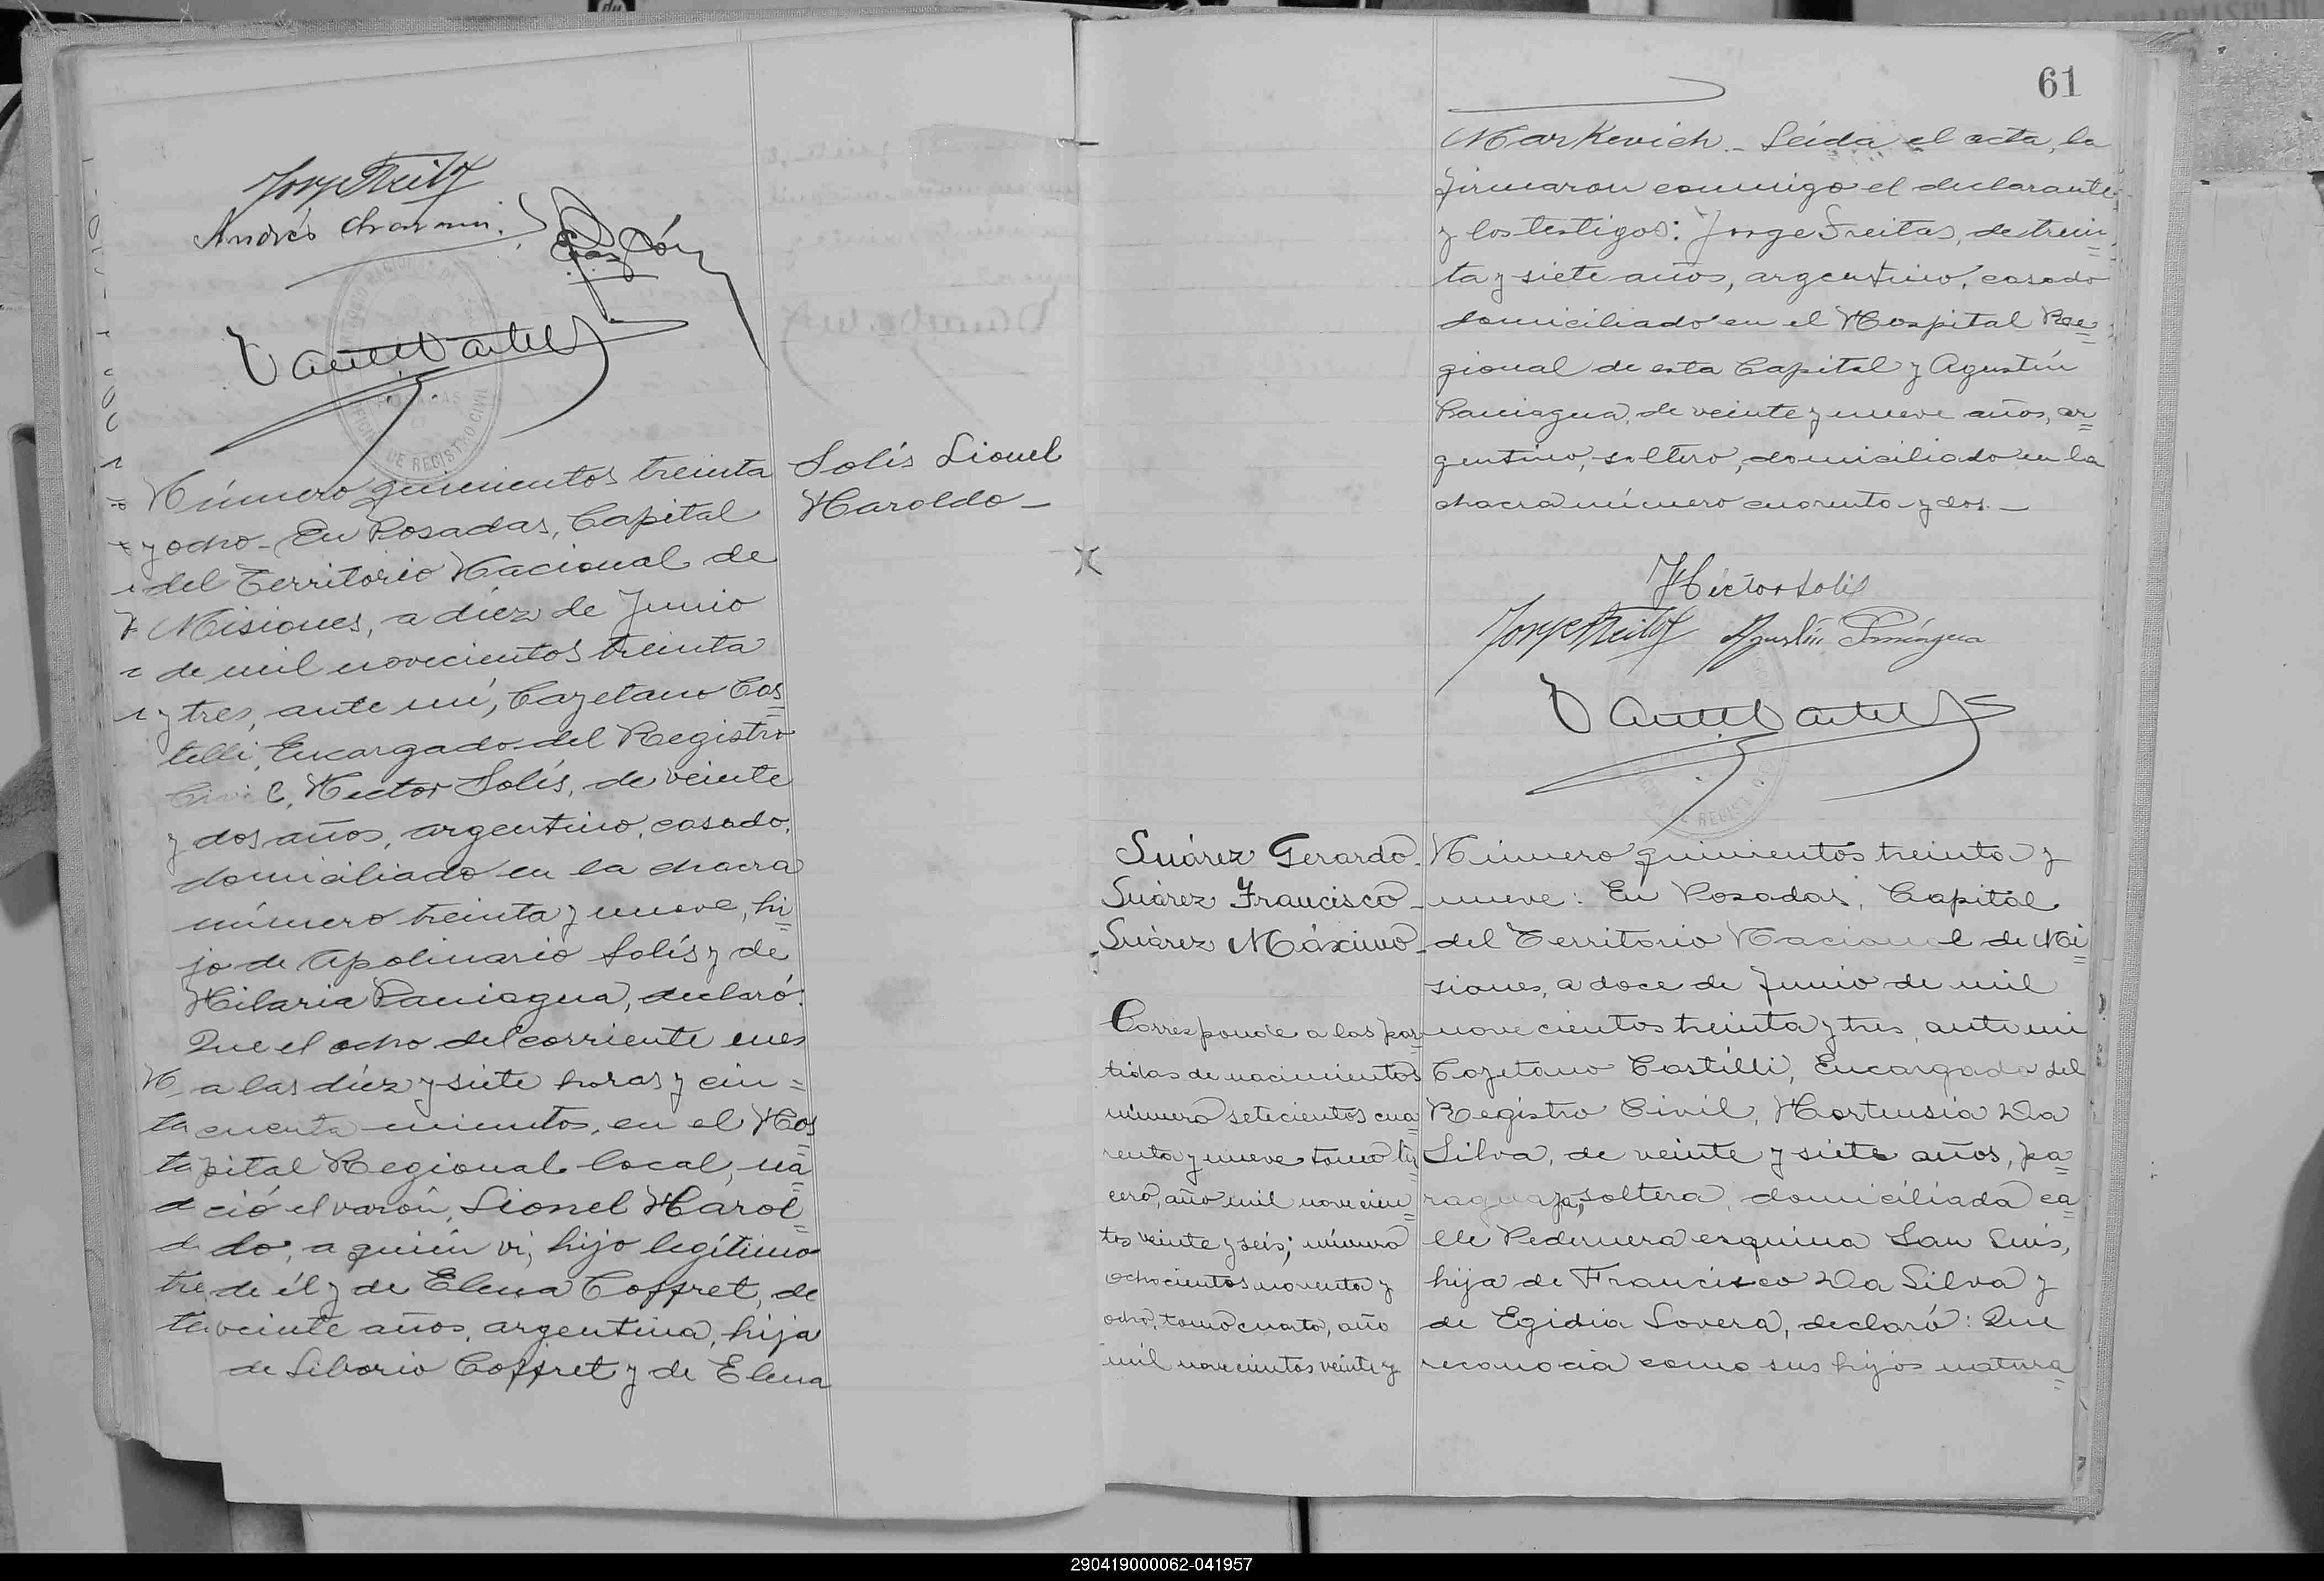 Jorge Freitas
Andrés
Número quinientos treinta
y ocho - En Posadas, Capital
del Territorio Nacional de
Misiones, a diez de Junio
de mil novecientos treinta
y tres, ante mí, Cayetano Cas=
telli, Encargado del Registro
Civil, Hector Solís, de veinte
y dos años, argentino, casado,
domiciliado en la chacra
número treinta y nueve, hi=
jo de Apolinario Solís y de
Hilaria Paniagua, declaró:
Que el ocho del corriente mes
a las diez y siete horas y cin=
cuenta minutos, en el Hos=
pital Regional local, na=
ció el varón, Lionel Harol=
do, a quién vi, hijo legítimo
de él y de Elena Coffret, de
veinte años, argentina, hija
de Liborio Coffret y de Elena
Solís Lionel
Haroldo -
OFICINA DE REGISTRO CIVIL
POSADAS
61
Markevich. - Leída el acta, la
firmaron conmigo el declarante
y los testigos: Jorge Freitas, de trein=
ta y siete años, argentino, casado
domiciliado en el Hospital Re=
gional de esta Capital y Agustín
Paniagua, de veinte y nueve años, ar=
gentino, soltero, domiciliado en la
chacra número cuarenta y dos. -
Héctor Solis
Jorge Freitas Agustín Paniagua
Suárez Gerardo -
Suárez Francisco -
Suárez Máximo -
Corresponde a las par=
tidas de nacimientos
número setecientos cua=
renta y nueve tomo ter=
cero, año mil novecien=
tos veinte y seis; número
ochocientos noventa y
ocho, tomo cuarto, año
mil novecientos veinte y
Número quinientos treinta y
nueve: En Posadas, Capital
del Territorio Nacional de Mi=
siones, a doce de Junio de mil
novecientos treinta y tres, ante mi
Cayetano Castelli, Encargado del
Registro Civil, Hortensia Da
Silva, de veinte y siete años, pa=
raguaya, soltera, domiciliada ca=
lle Pedernera esquina San Luis,
hija de Francisco Da Silva y
de Egidia Lovera, declaró: Que
reconocia como sus hijos natura=
290419000062-041957